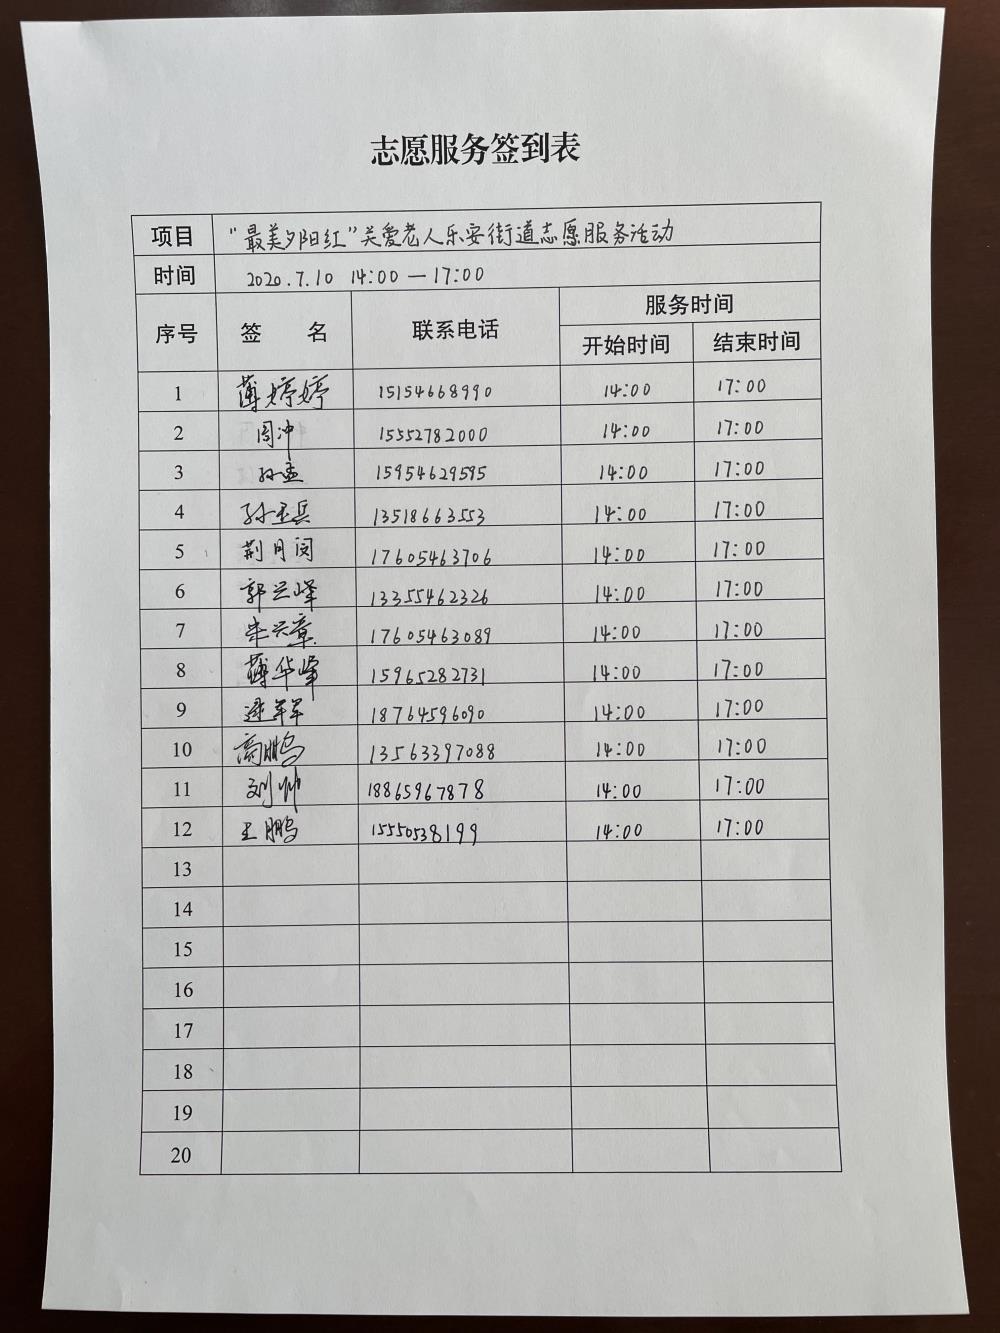 志愿服务签到表
项目 “最美夕阳红”关爱老人乐安街道志愿服务活动
时间 2020.7.10 14:00—17:00
序号 签 名 联系电话 服务时间
开始时间 结束时间
1 薄婷婷 15154668990 14:00 17:00
2 周冲 15552782000 14:00 17:00
3 孙孟 15954629595 14:00 17:00
4 孙玉兵 13518663553 14:00 17:00
5 荆月闵 17605463706 14:00 17:00
6 郭兴峰 13355462326 14:00 17:00
7 朱兴章 17605463089 14:00 17:00
8 薄华峰 15965282731 14:00 17:00
9 18764596090 14:00 17:00
10 高鹏 13563397088 14:00 17:00
11 刘帅 18865967878 14:00 17:00
12 王鹏 15550538199 14:00 17:00
13
14
15
16
17
18
19
20